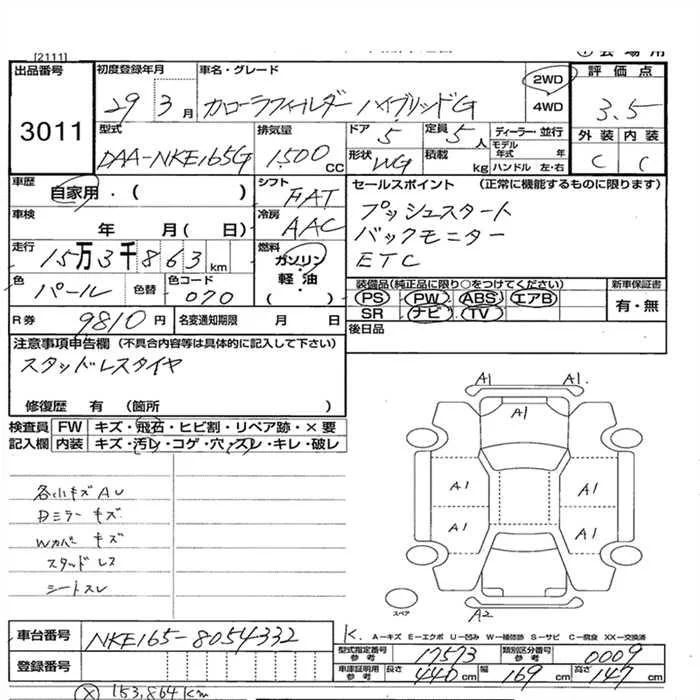 [2111]
出品番号 3011
初度登録年月 29 3月
車名・グレード カローラフィールダー ハイブリッドG
2WD
4WD
評価点 3.5
外装 内装
C C
型式 DAA-NKE165G
排気量 1,500 CC
ドア 5
定員 5人
形状 WG
積載 kg
ディーラー・並行
モデル年式 年
ハンドル 左・右
車歴 自家用・( )
シフト FAT
セールスポイント (正常に機能するものに限ります)
プッシュスタート
バックモニター
ETC
車検 年 月( 日)
冷房 AAC
走行 15万3千863km
燃料 ガソリン・軽油 ( )
色 パール 色替
色コード 070
装備品(純正品に限り○をつけてください)
PS PW ABS エアB
SR ナビ TV
新車保証書
有・無
R券 9810円
名変通知期限 月 日
後日品
注意事項申告欄 (不具合内容等は具体的に記入して下さい)
スタッドレスタイヤ
修復歴 有 (箇所 )
検査員 FW キズ・飛石・ヒビ割・リペア跡・×要
記入欄 内装 キズ・汚レ・コゲ・穴・スレ・キレ・破レ
各小キズAU
Dミラーキズ
Wカバーキズ
スタッドレス
シートスレ
A1 A1
A1
A1 A1
A1 A1
A2
スペア
車台番号 NKE165-8054332
K. A-キズ E-エクボ U-凹み W-補修跡 S-サビ C-腐食 XX-交換済
型式指定番号 参考 17573
類別区分番号 参考 0009
登録番号
車庫証明用 参考 長さ 440cm 幅 169cm 高さ 147cm
× 153,864km